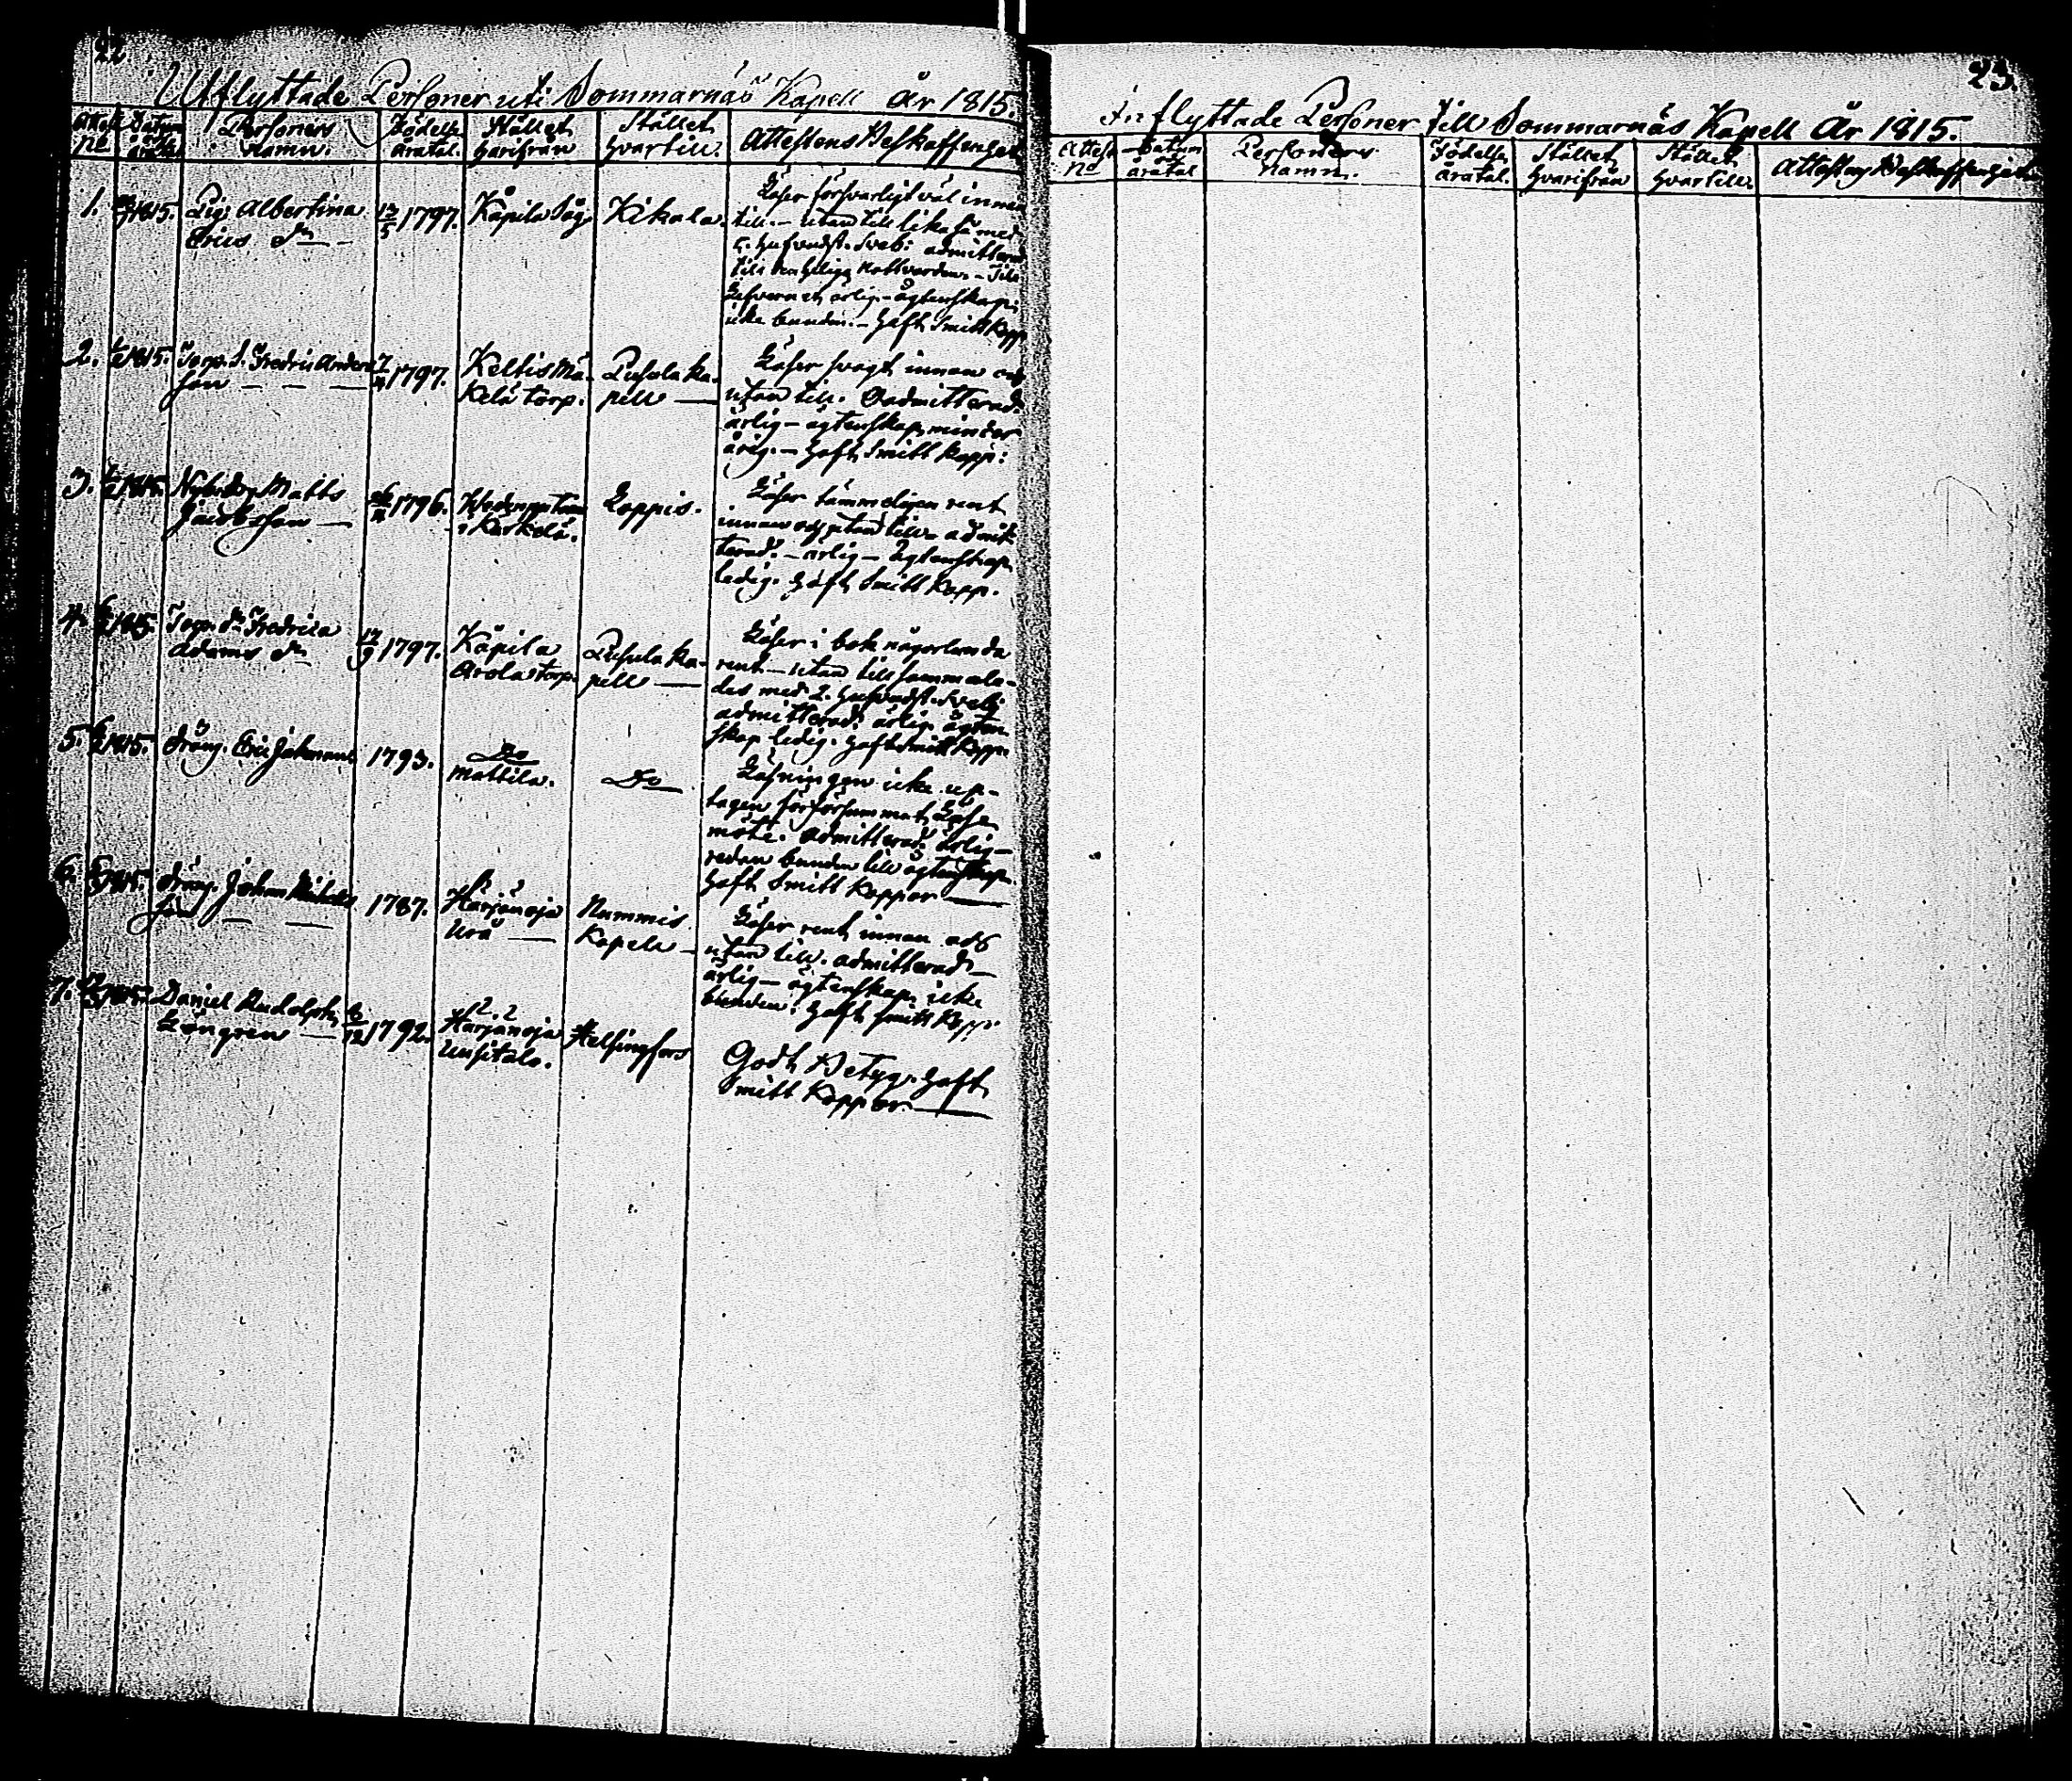 22
Utflyttade Personer uti Sommarnäs Kapell År 1815.
Attest No
Datum årtal
Personers Namn.
Födelse åratal.
Stället hvarifrån
Stället hvartill.
Attestens Beskaffenhet
1. 1815. Pig. Albertina Erics dr 1797. Kåpila Kikala.
Läser försvarligt väl innan
till. - utan till likaså med
admitterad
Nattvarden. -
ärlig. - ägtenskap.
icke bunden. - haft Smitt kopp
2. 1815. Torp. S. Fredric Anders
son 1797. Keltis Mä-
kelä torp. Pusula Ka-
pell
Läser svagt innan och
utan till. Oadmitterad.
ärlig - ägtenskap minder
årig. - haft Smitt kopp:
3. 1815. Matts
Jacobsson 1796. Kärkelä. Loppis.
Läser tämmeligen rent
innan och utan till. admit-
terad. - ärlig - Ägtenskap
ledig. haft Smitt kopp.
4. 1815. Torp. dr Fredrica
Adams dr 1797. Kåpila
Arola torp. Pusula Ka-
pell
Läser i bok någorlunda
rent - utan till sammale-
des med 2. hufvudst. Sveb:
admitterad. ärlig. ägten-
skap ledig. haft Smitt kopp.
5. 1815. Dräng. Eric Johansson 1793. Do
Mattila. Do
Läsningen icke up-
tagen för försummat Läse
möte. admitterad. ärlig -
redan bunden till ägtenskap.
haft Smitt koppor
6. 1815. Dräng. Johan Michels
son 1787. Härjänoja
Nummis
Kapell
Läser rent innan och
utan till. admitterad. -
ärlig - ägtenskap icke
bunden. haft Smitt kopp:
7. 1815. Daniel Rudolph
Löngren 1792. Härjänoja
Uusitalo. Helsingfors
Godt Betyg. haft
Smitt koppor.
23.
Inflyttade Personer till Sommarnäs Kapell År 1815.
Attest No
Datum och åratal
Personers Namn.
Födelse åratal.
Stället hvarifrån
Stället hvartill.
Attestens Beskaffenhet